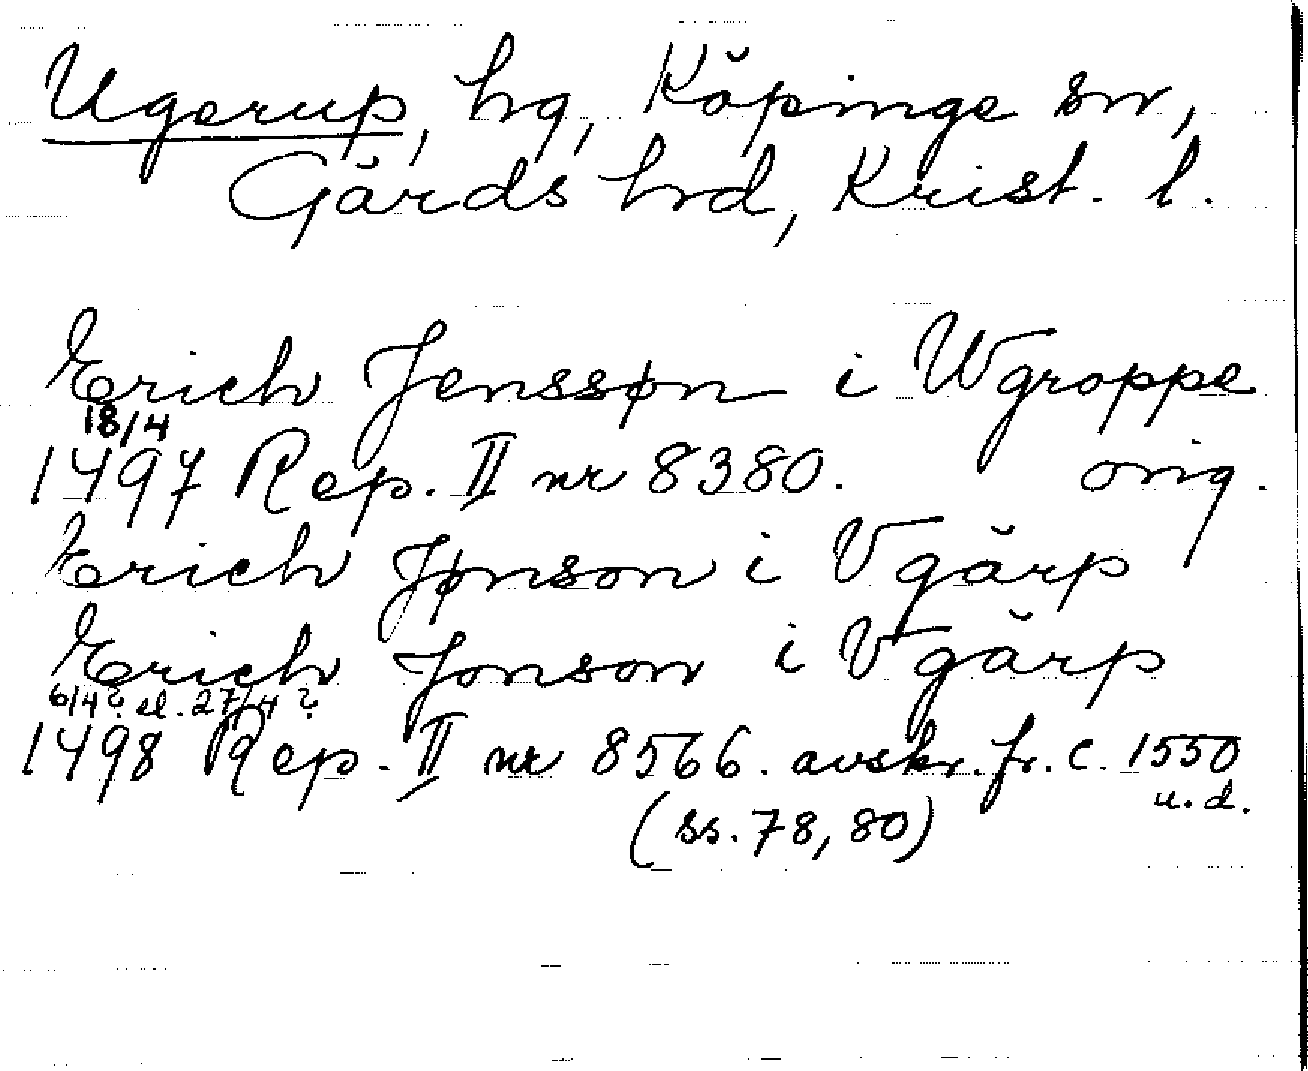 Ugerup, hg, Köpinge sn,
Gärds hrd, Krist. l.
Erich Jenssøn i Wgroppe
18/4
1497 Rep. II nr 8380. orig.
Erich Jønson i Vgärp
Erich Jonson i Vgärp
6/4? el. 27/4?
1498 Rep. II nr 8566. avskr. fr. c. 1550
u. d.
(ss. 78, 80)